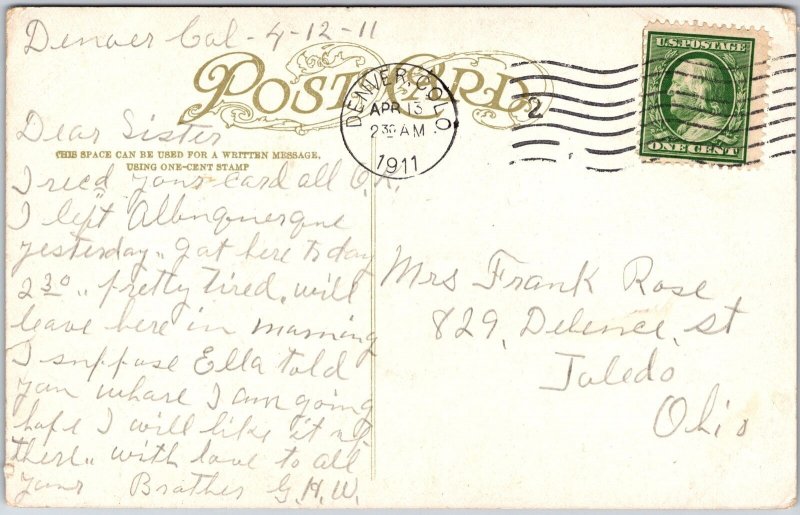 Denver Col - 4-12-11
POST CARD
DENVER, COLO.
APR 13
2 30 AM
1911
2
U.S. POSTAGE
ONE CENT
Dear Sister
THIS SPACE CAN BE USED FOR A WRITTEN MESSAGE,
USING ONE-CENT STAMP
I recd your card all O.K.
I left Albuquerque
yesterday.. got here to day
2 30.. pretty tired. will
leave here in morning
I suppose Ella told
you whare I am going
hope I will like it
there.. with love to all
your Brother G.H.W.
Mrs Frank Rose
829, Defence, st
Toledo
Ohio